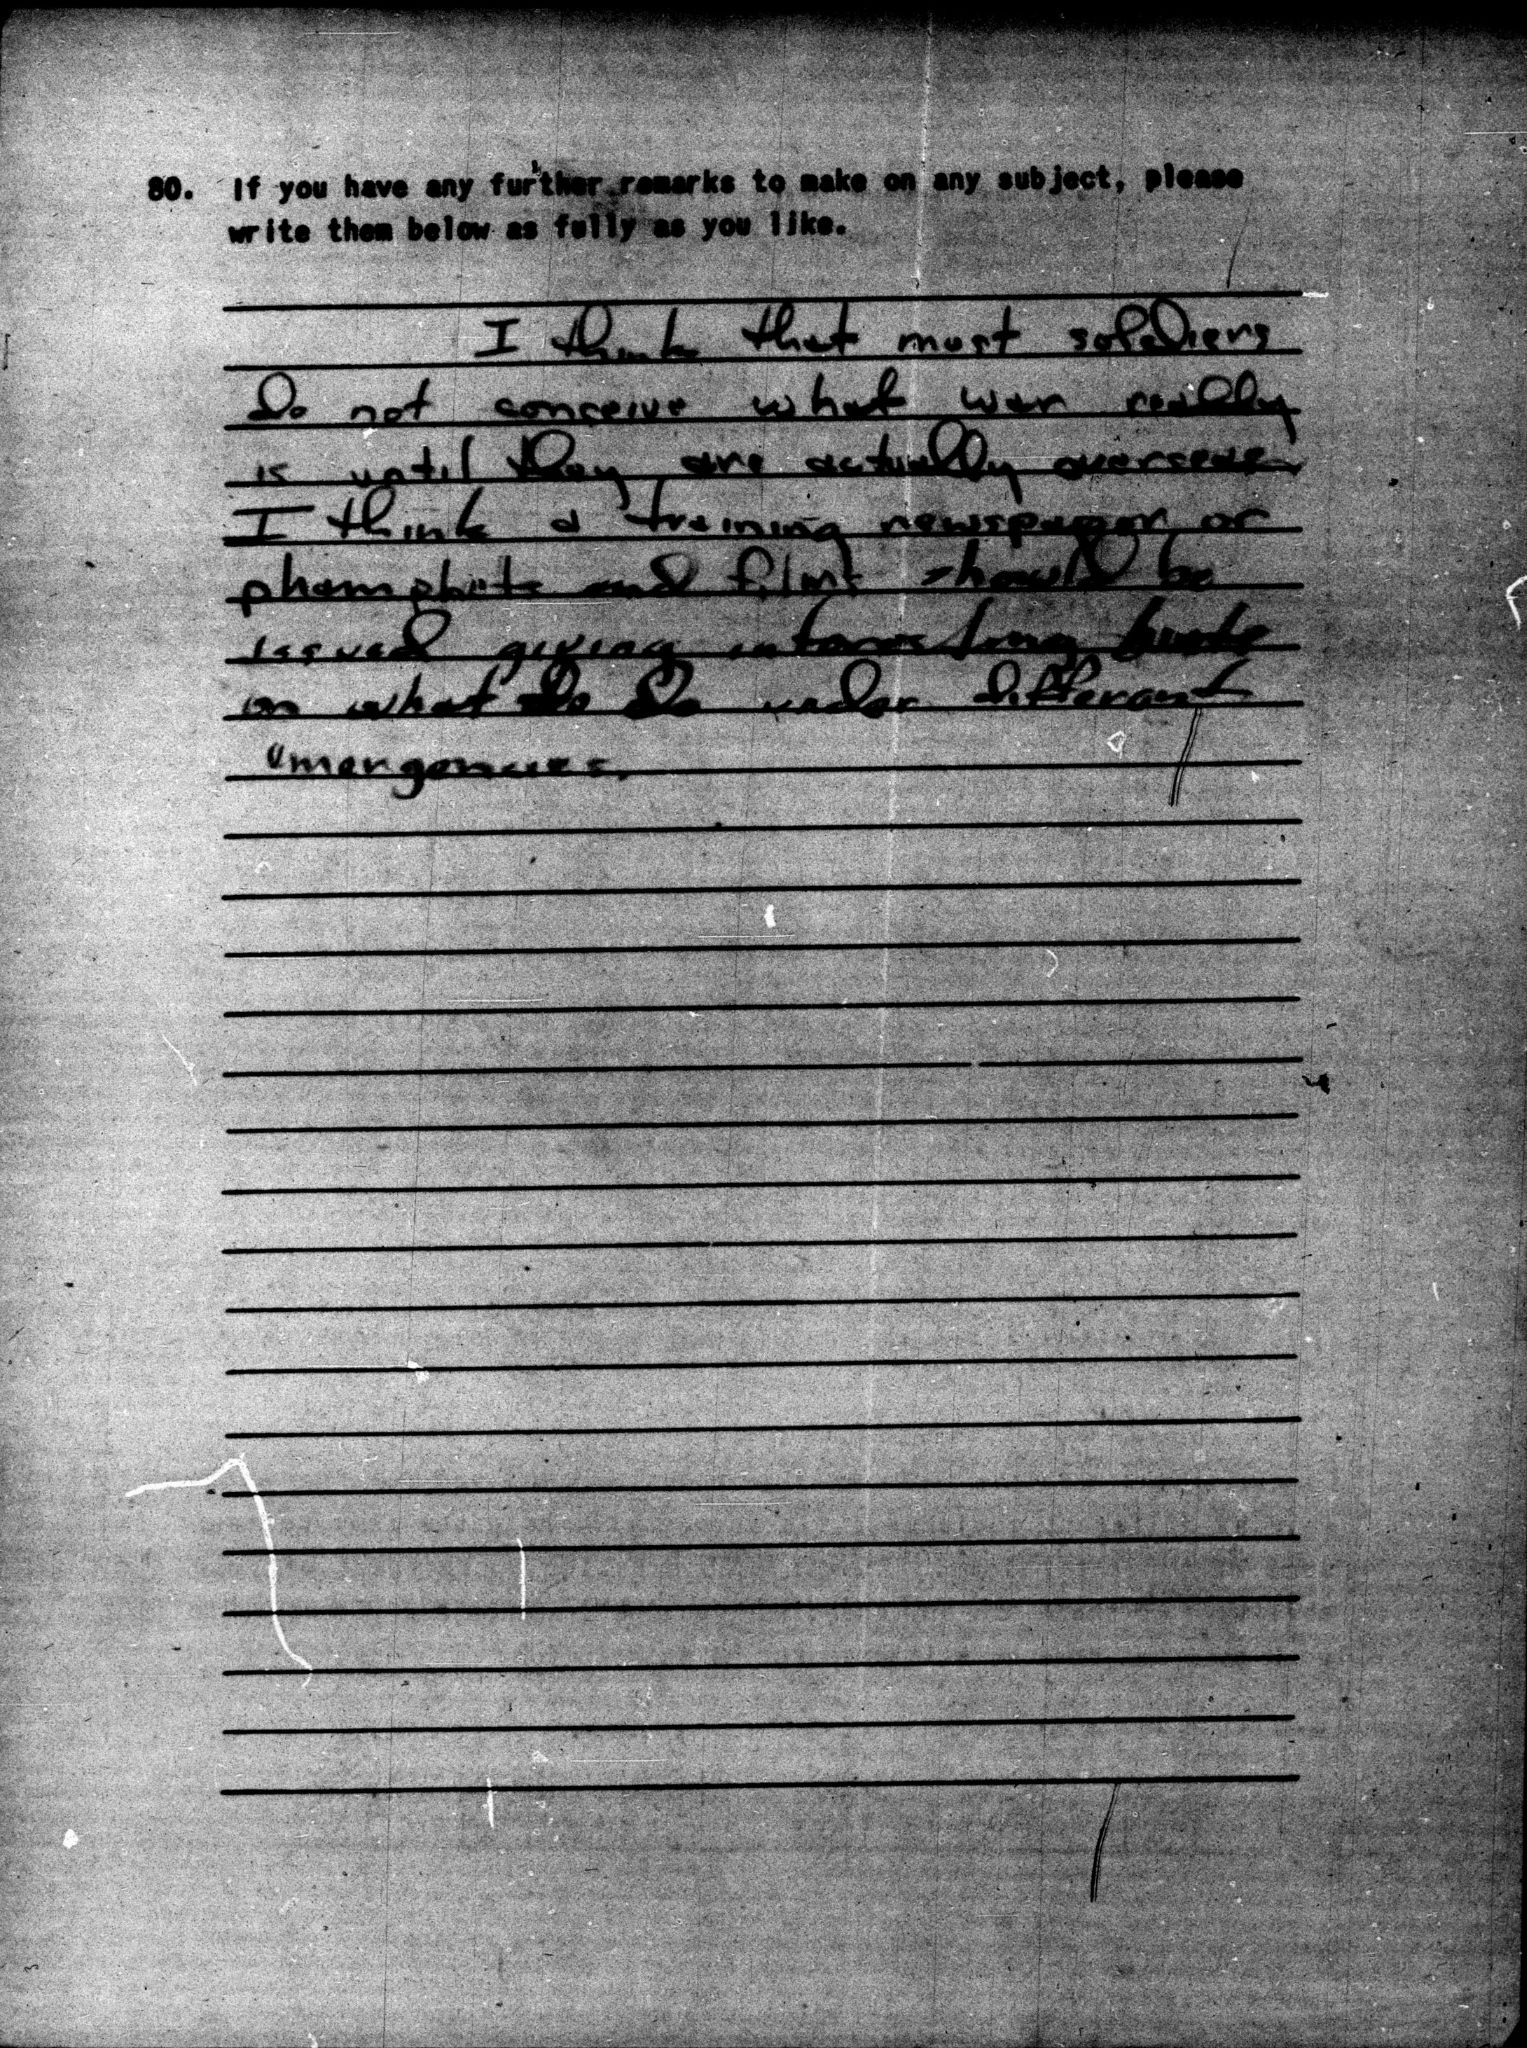 80. If you have any further remarks to make on any subject, please
write them below as fully as you like.
I think that most soldiers
do not conceive what war really
is until they are actually overseas.
I think a training newspaper or
phamphlets and films should be
issued giving interesting hints
on what to do under different
emergencies.